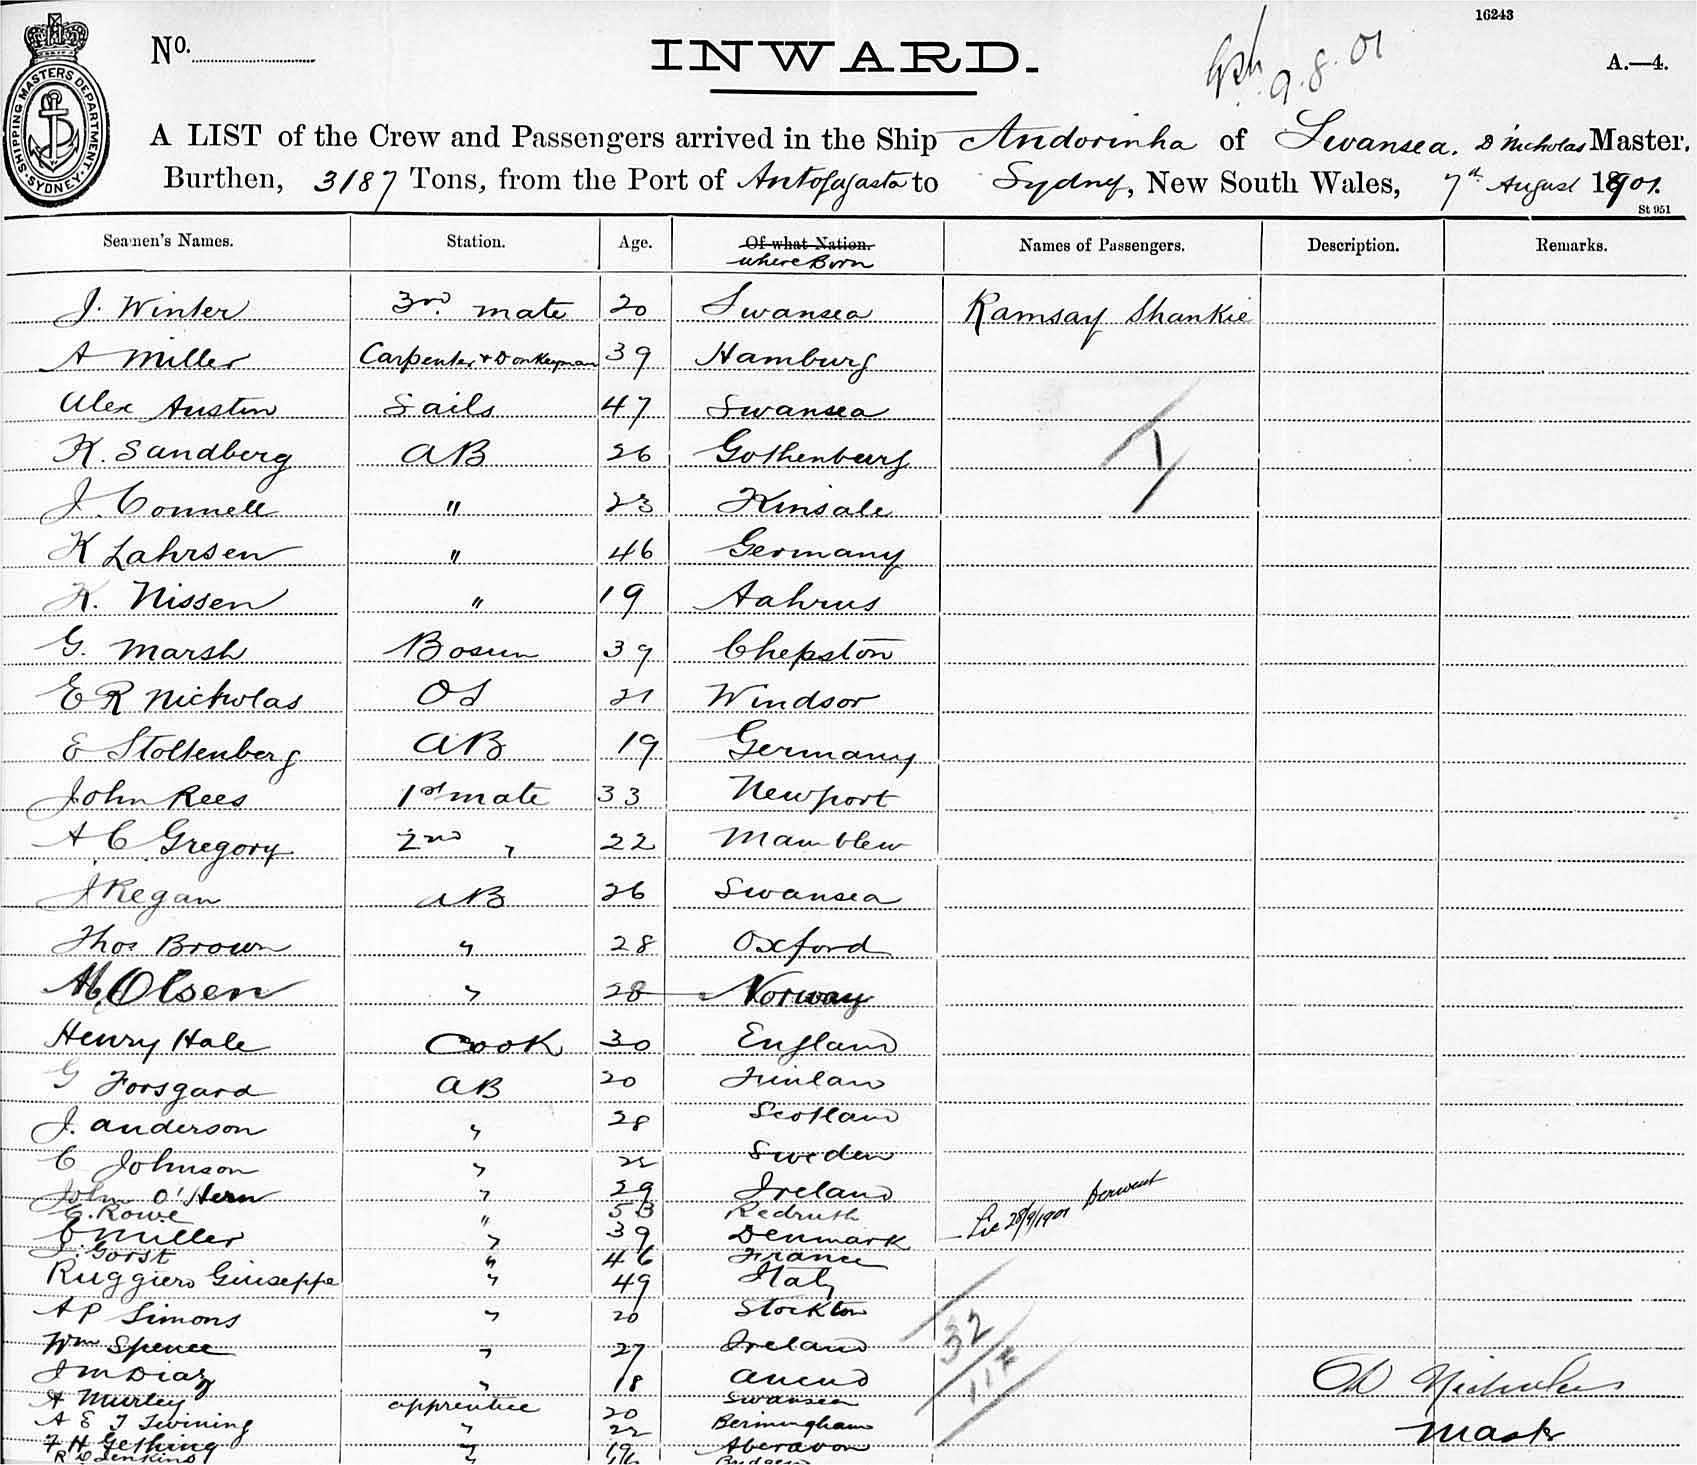 16243
No.
INWARD.
9.8.01
A.—4.
SHIPPING MASTERS DEPARTMENT. SYDNEY.
A LIST of the Crew and Passengers arrived in the Ship Andorinha of Swansea. D Nicholas Master,
Burthen, 3187 Tons, from the Port of Antofagasta to Sydney, New South Wales, 7th August 1901.
St 951
Seamen's Names. Station. Age. Of what Nation. Names of Passengers. Description. Remarks.
where Born
J. Winter 3rd. mate 20 Swansea Ramsay Shankie
A Miller Carpenter & Donkeyman 39 Hamburg
Alex Austin Sails 47 Swansea
K. Sandberg AB 26 Gothenburg
1
J. Connell " 23 Kinsale
K Lahrsen " 46 Germany
K. Nissen " 19 Aahrus
G. Marsh Bosun 39 Chepston
E R Nicholas OS 21 Windsor
E Stoltenberg AB 19 Germany
John Rees 1st mate 33 Newport
A C Gregory 2nd " 22 Mamblew
J Regan AB 26 Swansea
Thos Brown " 28 Oxford
Olsen " 28 Norway
Henry Hale Cook 30 England
G Forsgard AB 20 Finlan
J. Anderson " 28 Scotland
C Johnson " 22 Sweden
John O'Hern " 29 Ireland
G. Rowe " 53 Redruth
C Miller " 39 Denmark 28/9/1901 Derwent
J. Gorst " 46 France
Ruggiero Giuseppe " 49 Italy
A P Simons " 20 Stockton
32
Wm Spence " 27 Ireland
J M Diaz " 18 Ancud
D Nicholas
A Murley apprentice 20 Swansea
A E T Twining " 22 Bermingham
Mastr
F H Gething " 19 Aberavon
R D Jenkins " 16